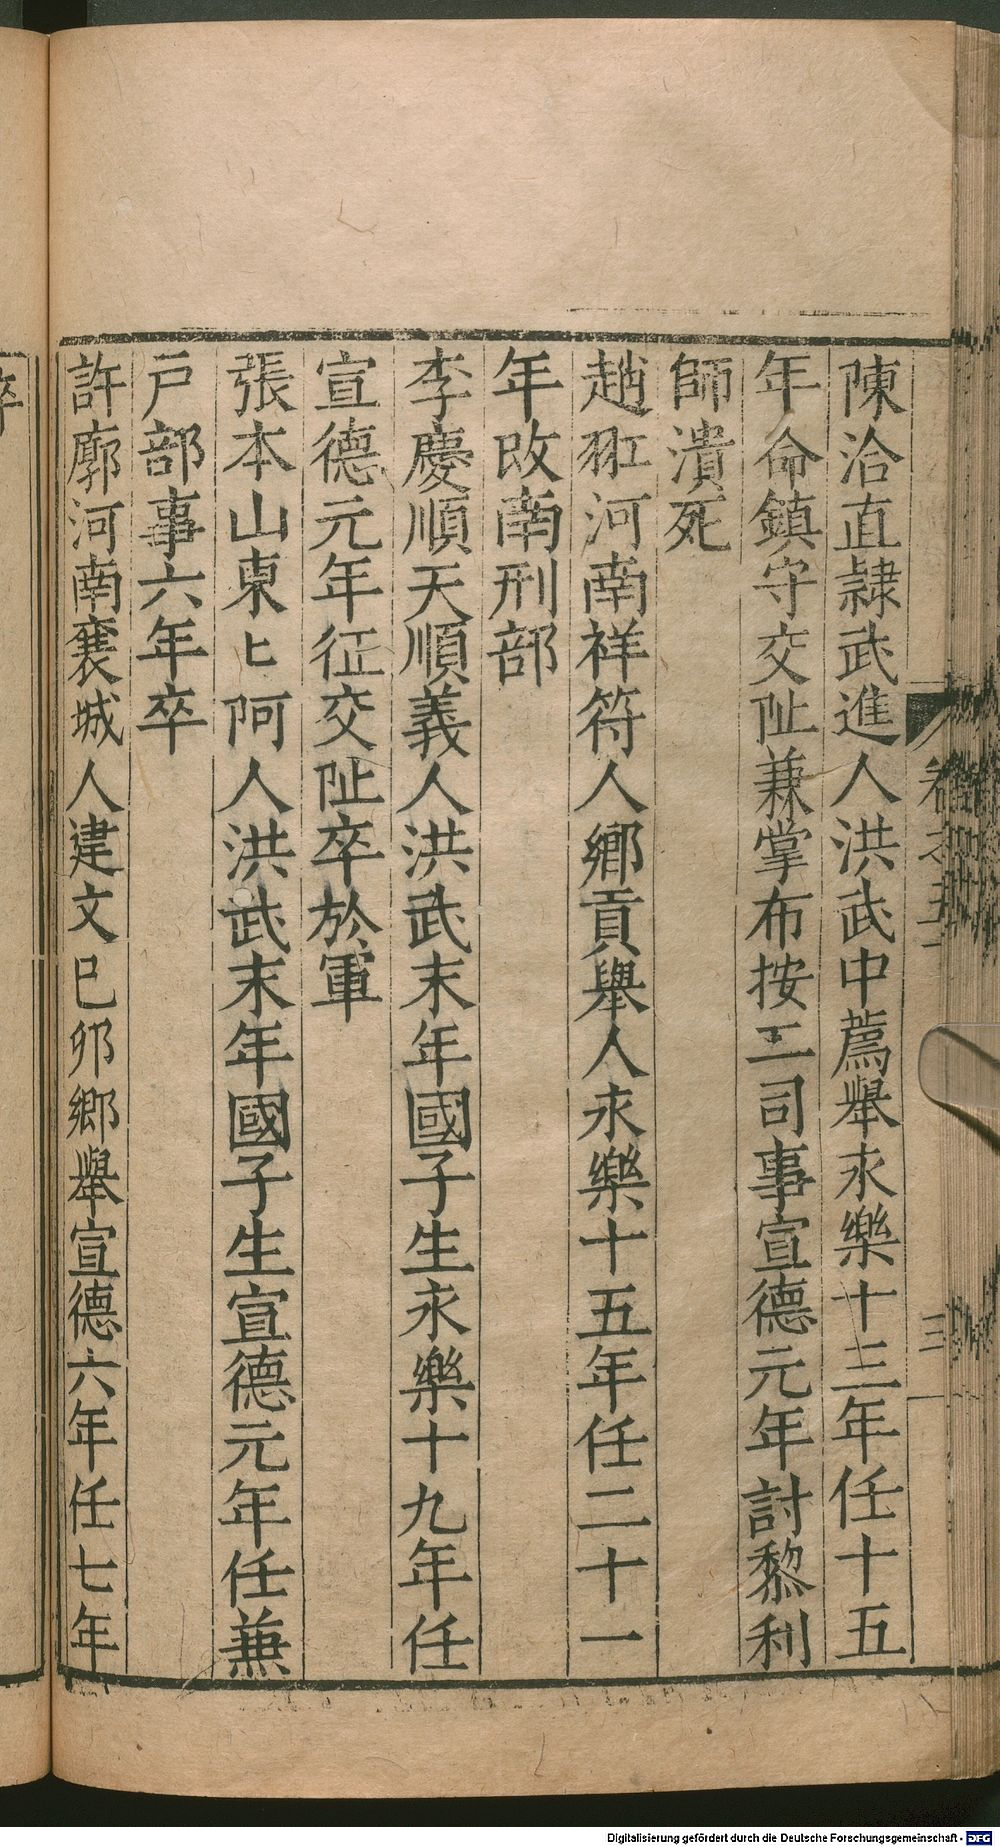 陳洽直隸武進人洪武中薦舉永樂十三年任十五
年命鎮守交阯兼掌布按二司事宣德元年討黎利
師潰死
趙羾河南祥符人鄉貢舉人永樂十五年任二十一
年改南刑部
李慶順天順義人洪武末年國子生永樂十九年任
宣德元年征交阯卒於軍
張本山東匕阿人洪武末年國子生宣德元年任兼
戶部事六年卒
許廓河南襄城人建文巳卯鄉舉宣德六年任七年
卒
卷之五
三
Digitalisierung gefördert durch die Deutsche Forschungsgemeinschaft - DFG